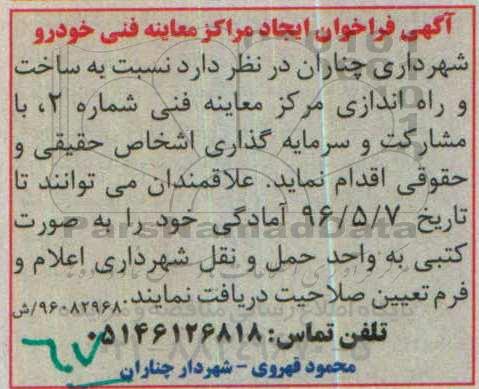 آگهی فراخوان ایجاد مراکز معاینه فنی خودرو
شهرداری چناران در نظر دارد نسبت به ساخت
و راه اندازی مرکز معاینه فنی شماره ۲، با
مشارکت و سرمایه گذاری اشخاص حقیقی و
حقوقی اقدام نماید. علاقمندان می توانند تا
تاریخ ۹۶/۵/۷ آمادگی خود را به صورت
کتبی به واحد حمل و نقل شهرداری اعلام و
فرم تعیین صلاحیت دریافت نمایند. ۹۶۰۸۲۹۶۸/ش
تلفن تماس: ۰۵۱۴۶۱۲۶۸۱۸
محمود قهروی - شهردار چناران
۶.۷
ParsNamadData